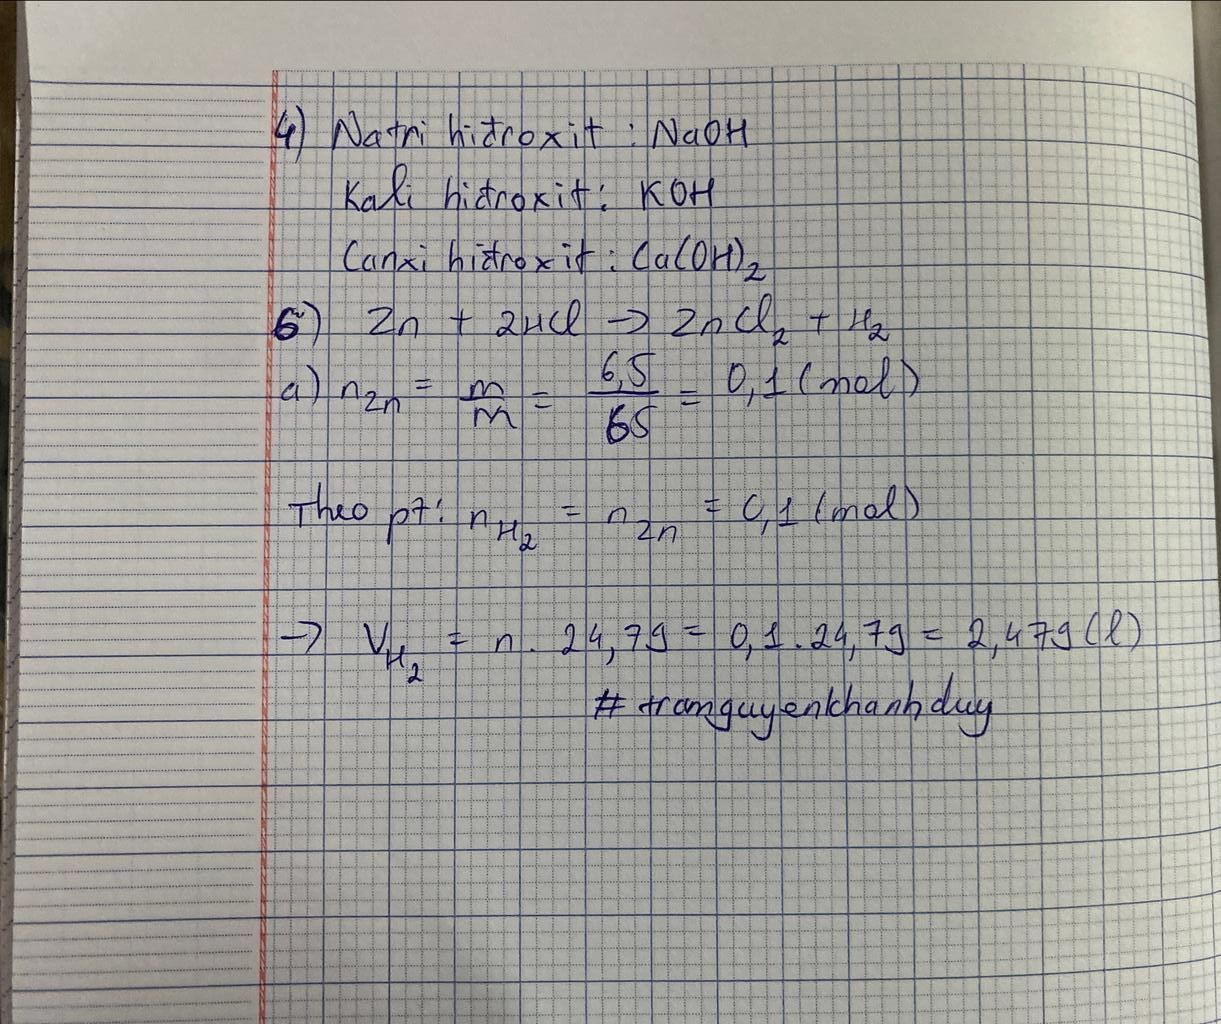 4) Natri hiđroxit : NaOH
Kali hiđroxit : KOH
Canxi hiđroxit : Ca(OH)₂
6) Zn + 2HCl → ZnCl₂ + H₂
a) n_Zn = m/M = 6,5/65 = 0,1 (mol)
Theo pt : n_H₂ = n_Zn = 0,1 (mol)
→ V_H₂ = n . 24,79 = 0,1 . 24,79 = 2,479 (l)
# tranguyenkhanhduy